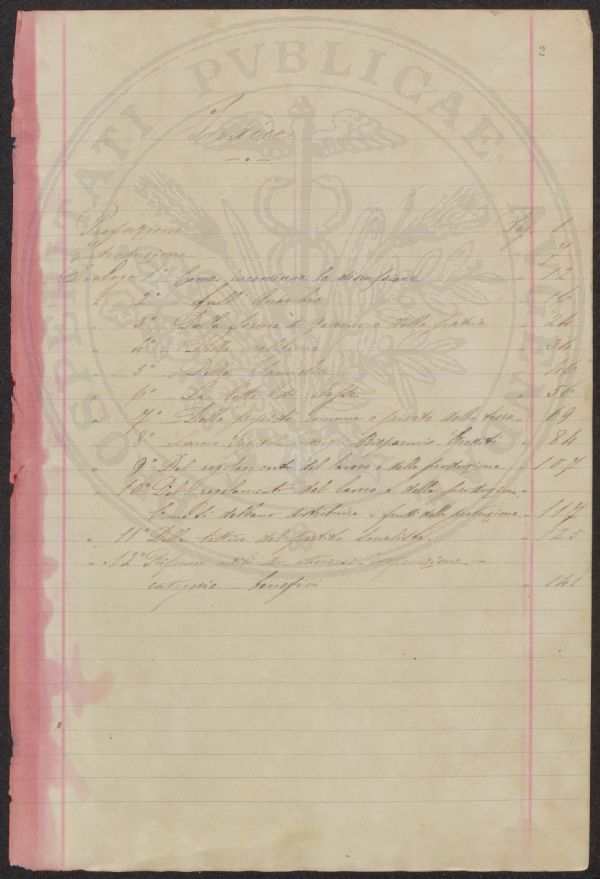 2
Indice
Prefazione Pag. 1
Introduzione " 7
Dialogo 1° Come incomincia la discussione " 12
" 2° Sull' Anarchia " 16
" 3° Della forma di Governo e della patria " 24
" 4° Della religione " 34
" 5° Della famiglia "
" 6° La lotta di classe " 56
" 7° Della proprietà comune o privata della terra " 69
" 8° Risparmio Eredità " 84
" 9° Del regolamento del lavoro e della produzione " 107
" 10° Del regolamento del lavoro e della produzione
Come si debbano distribuire i frutti della produzione " 117
" 11° Della tattica del partito socialista " 125
" 12°
categorie — benefici " 141
PVBLICAE